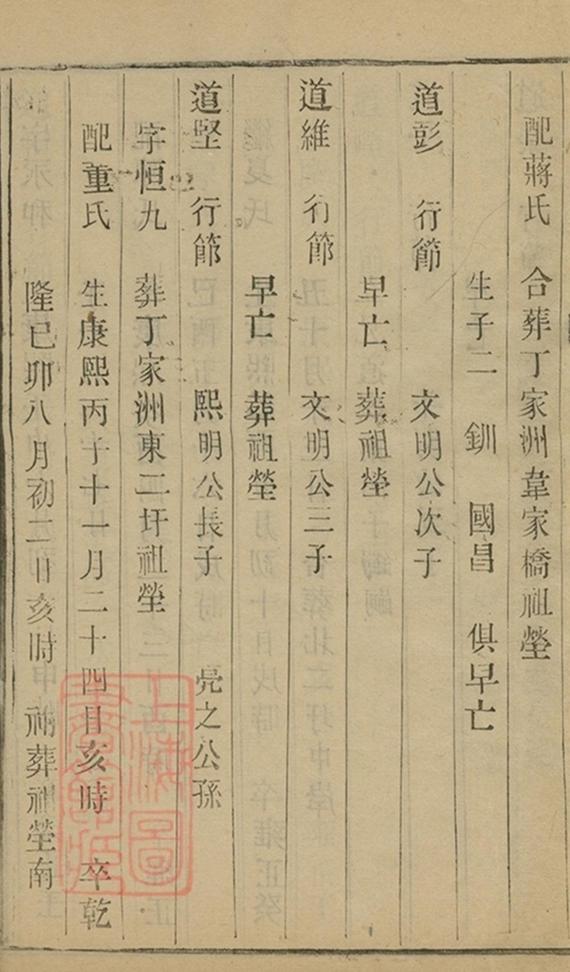 配蔣氏 合葬丁家洲韋家橋祖塋
生子二 釧 國昌 俱早亡
道彭 行節 文明公次子
早亡 葬祖塋
道維 行節 文明公三子
早亡 葬祖塋
道堅 行節 熙明公長子 亮之公孫
字恒九 葬丁家洲東二圩祖塋
配董氏 生康熙丙子十一月二十四日亥時 卒乾
隆己卯八月初二日亥時 祔葬祖塋南
上海圖書館藏